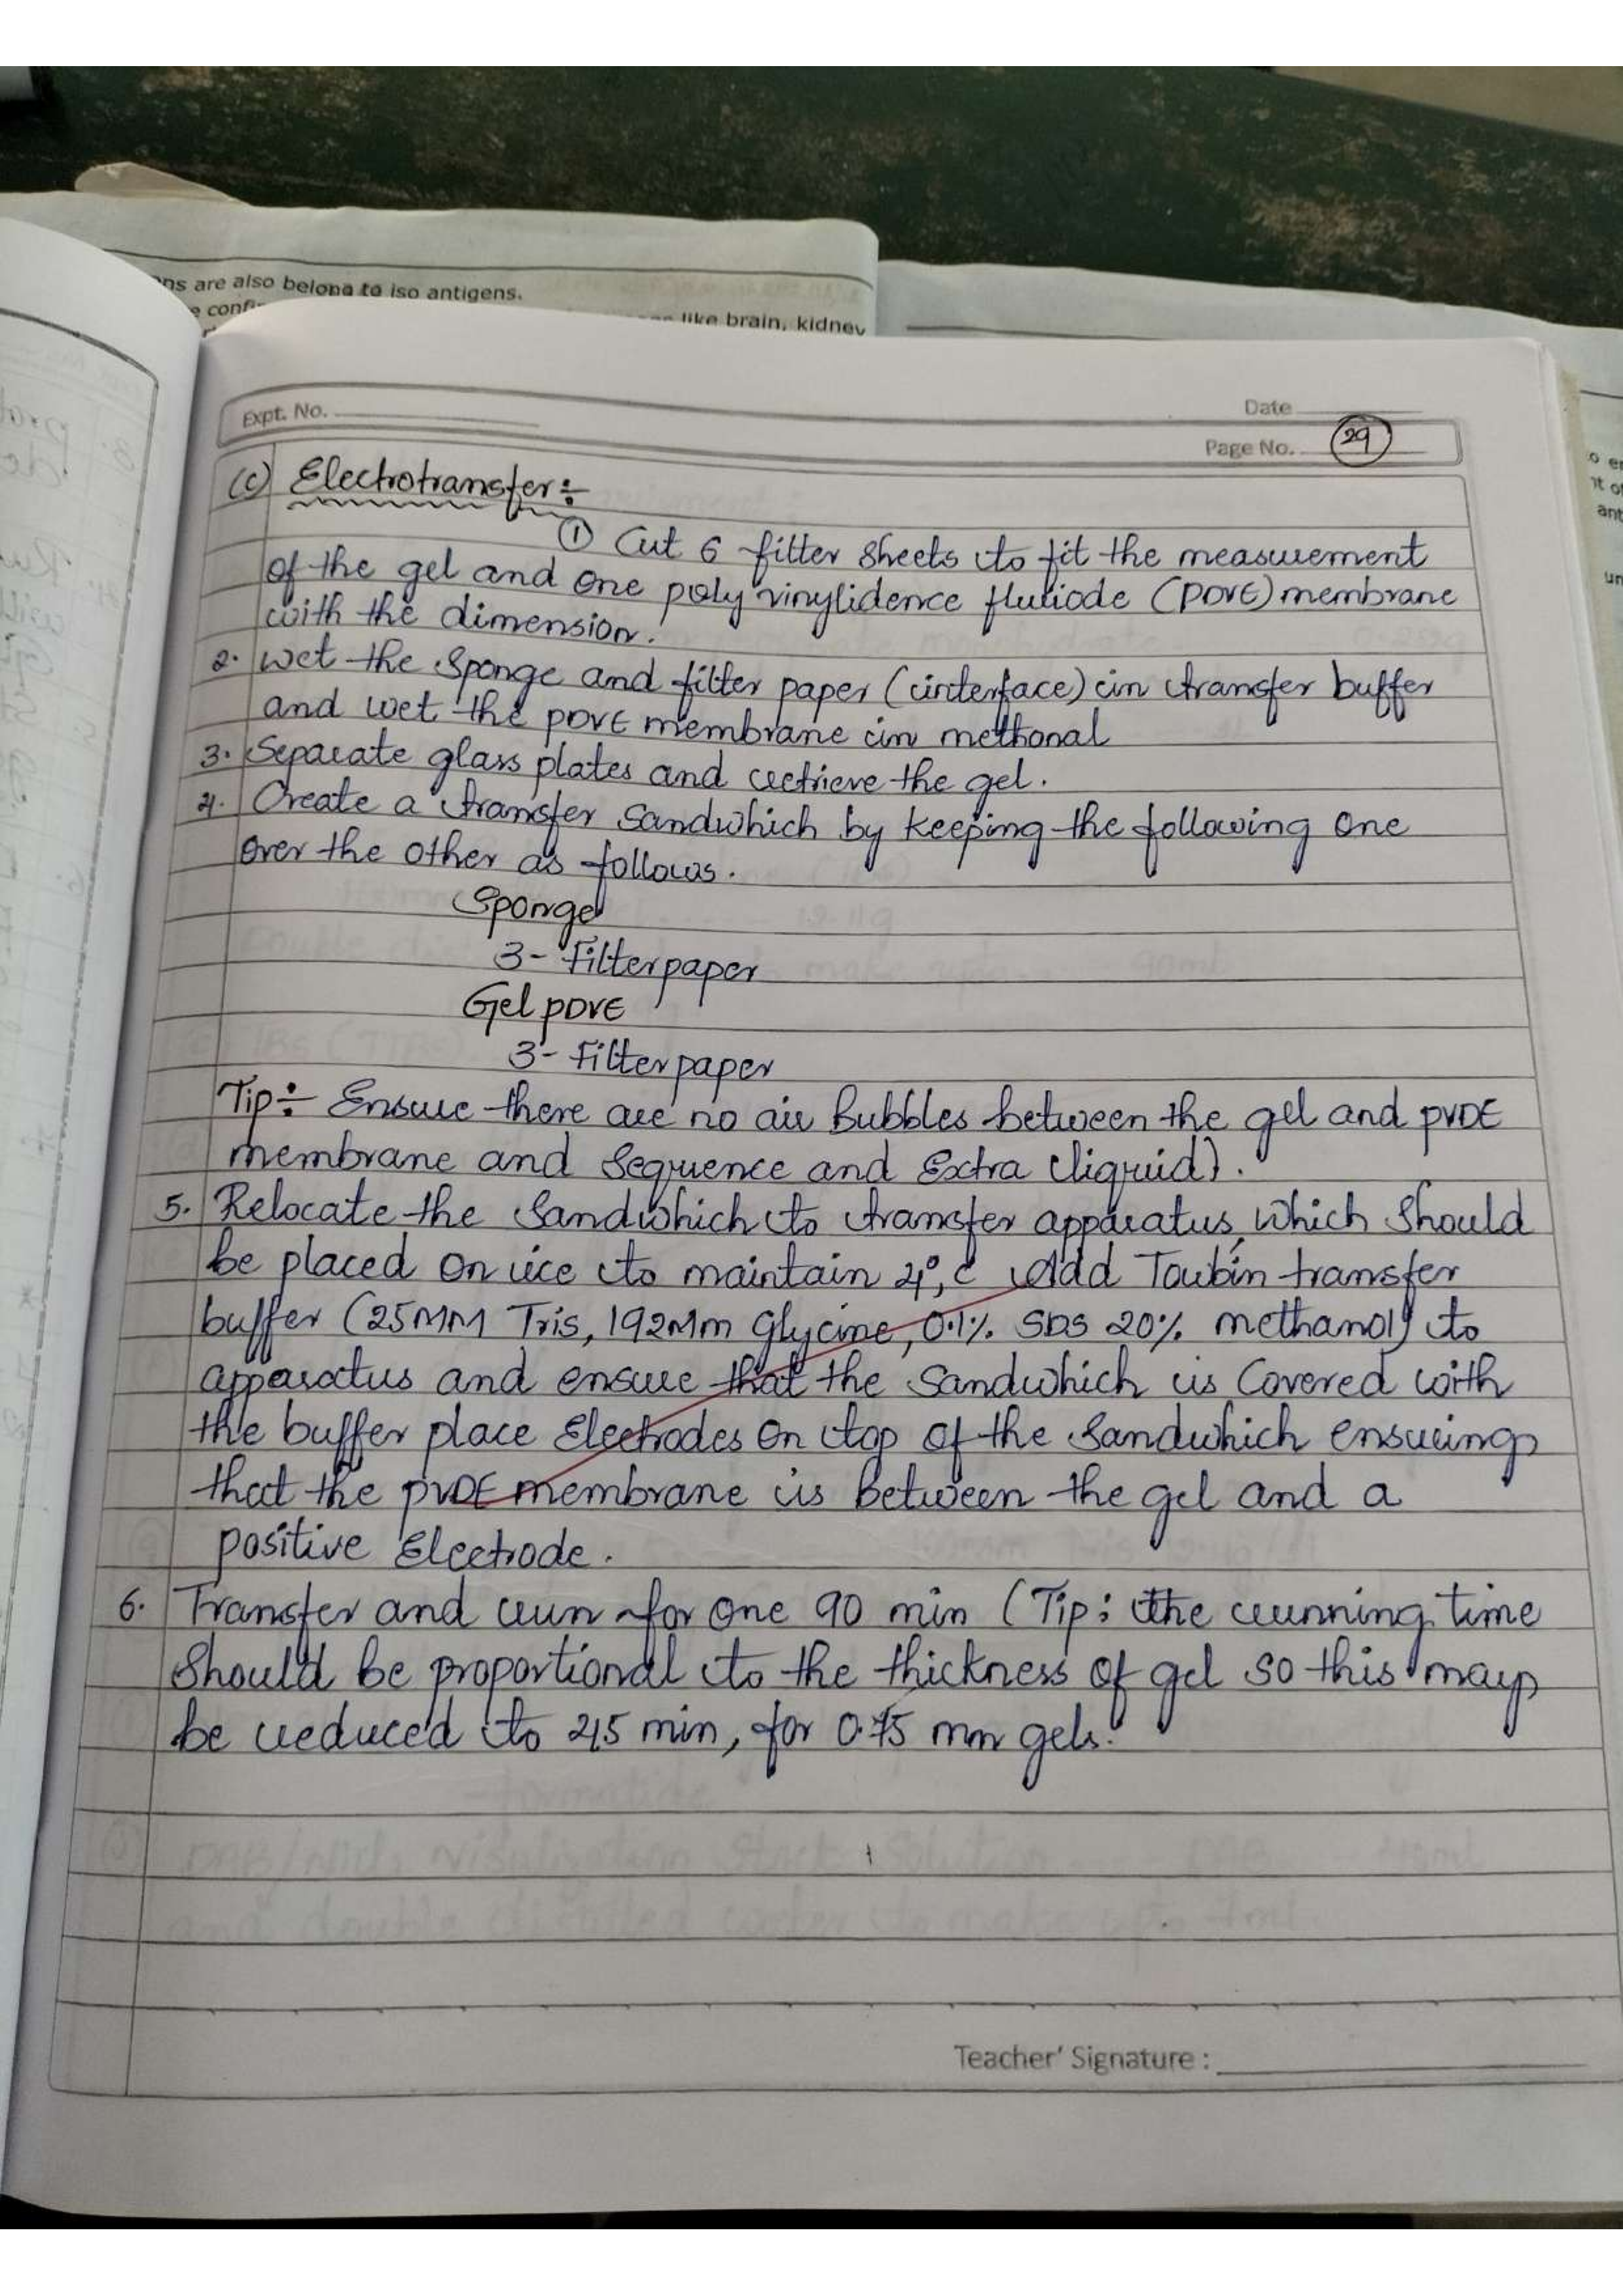 ns are also belong to iso antigens.
like brain, kidney
Expt. No.
Date
Page No. 29
(c) Electrotransfer:-
① Cut 6 filter sheets to fit the measurement
of the gel and one poly vinylidence fluriode (PDVE) membrane
with the dimension.
2. Wet the sponge and filter paper (interface) in transfer buffer
and wet the PDVE membrane in methonal
3. Separate glass plates and retrieve the gel.
4. Create a transfer sandwhich by keeping the following one
over the other as follows.
Sponge
3- Filterpaper
Gel PDVE
3- Filterpaper
Tip:- Ensure there are no air Bubbles between the gel and PVDE
membrane and Sequence and Extra liquid).
5. Relocate the Sandwhich to transfer apparatus, which should
be placed on ice to maintain 4°, c Add Towbin transfer
buffer (25MM Tris, 192Mm Glycine, 0.1% SDS 20% methanol) to
apparatus and ensure that the Sandwhich is Covered with
the buffer place Electrodes on top of the Sandwhich ensuring
that the PVDE membrane is Between the gel and a
positive Electrode.
6. Transfer and run for one 90 min (Tip: the running time
Should be proportional to the thickness of gel so this may
be reduced to 45 min, for 0.75 mm gels.
Teacher' Signature :